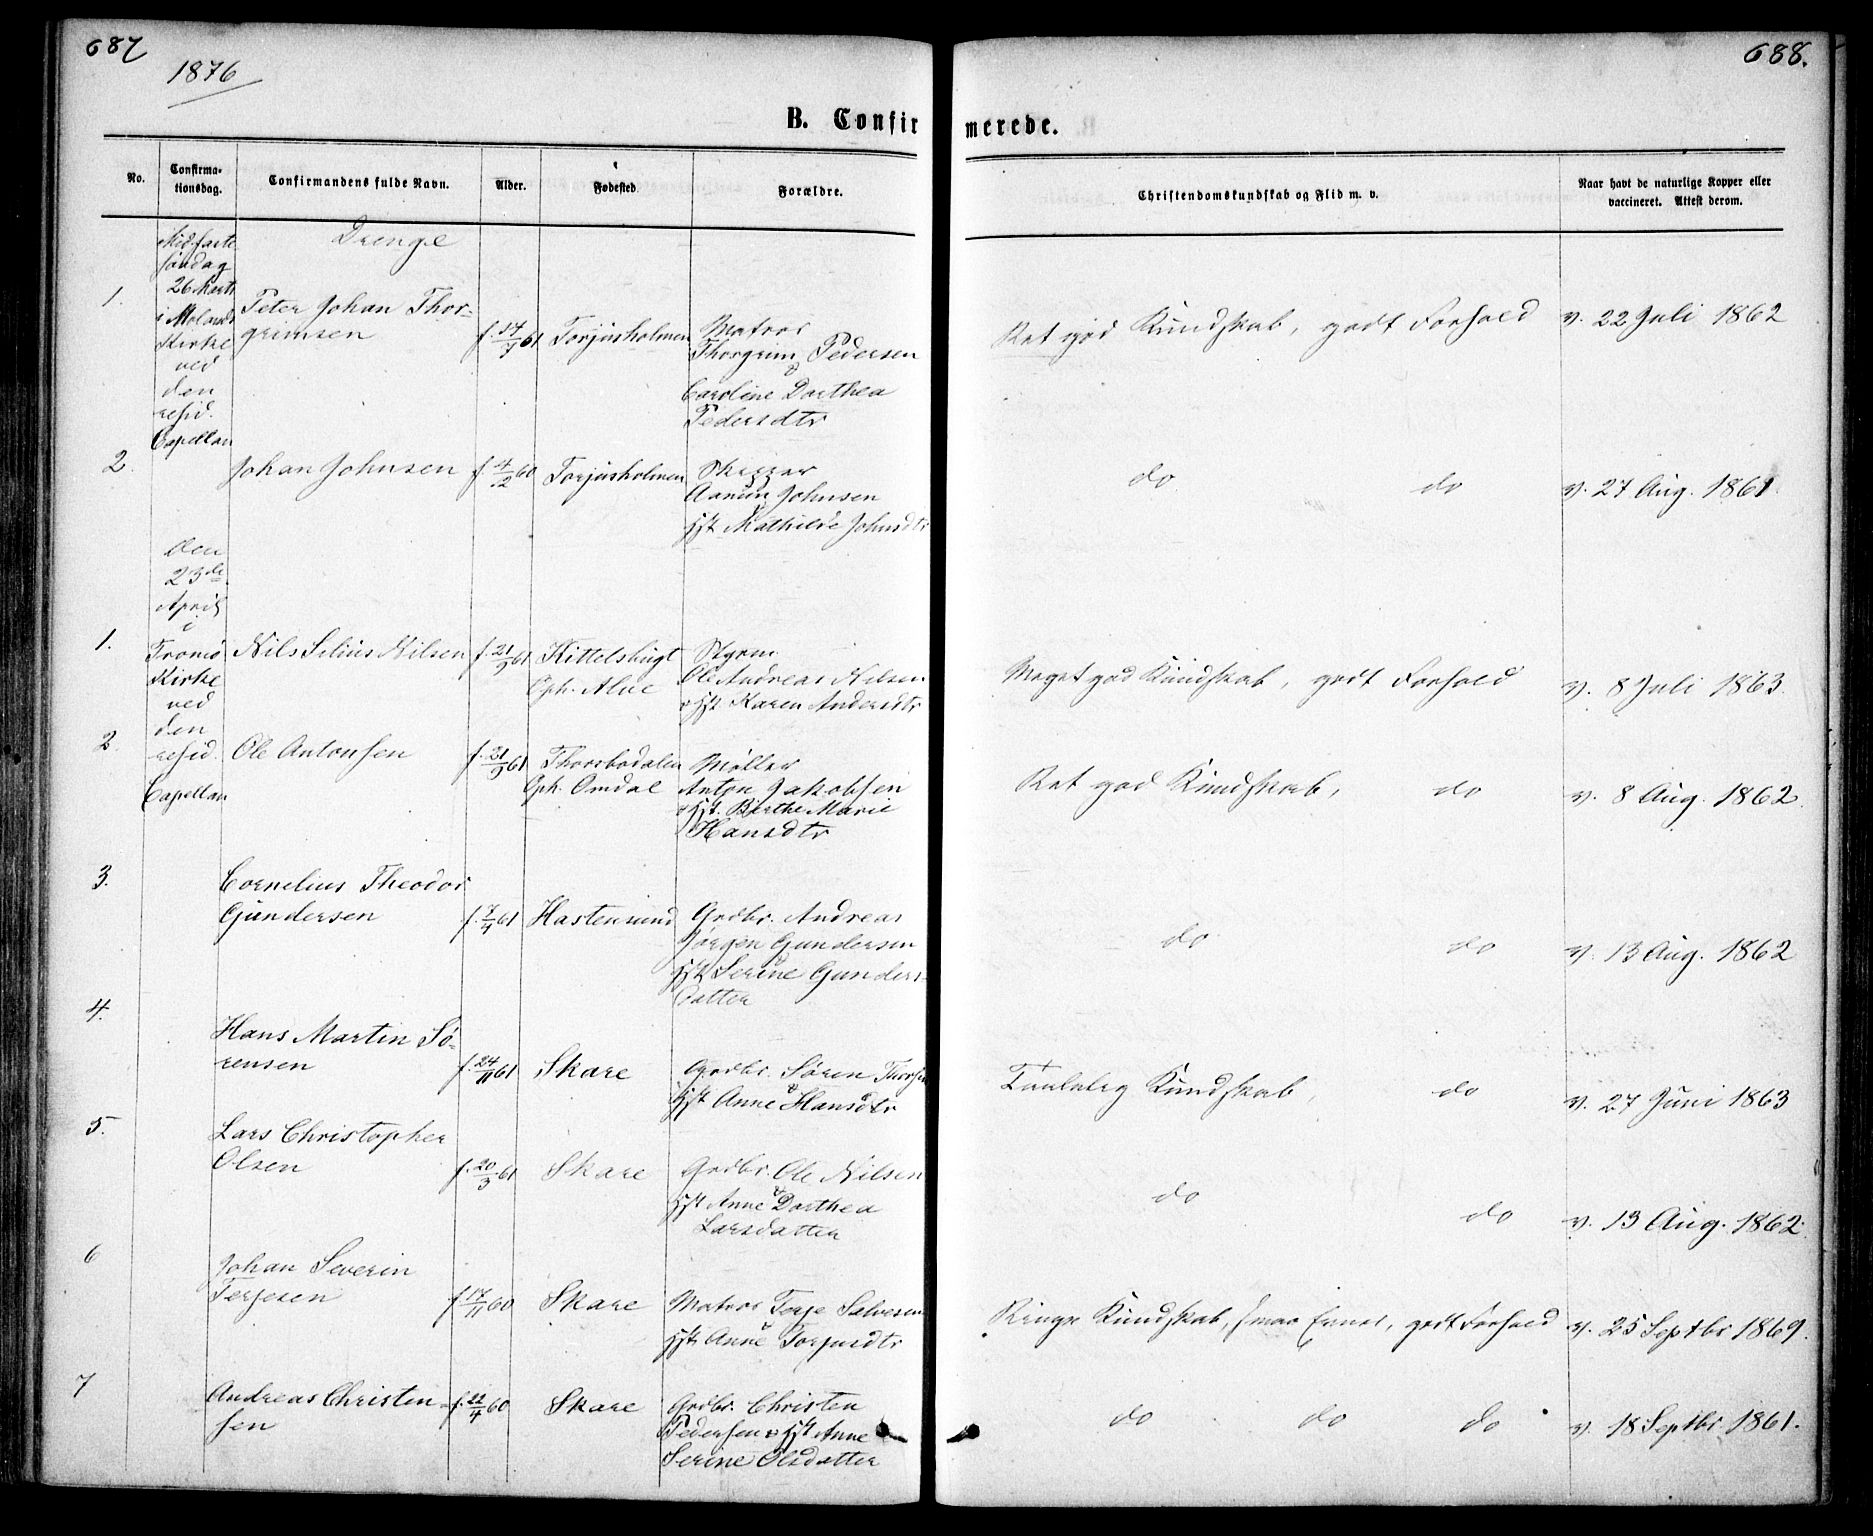 687
1876
688.
B. Confirmerede.
No.
Confirma-
tionsdag.
Confirmandens fulde Navn.
Alder.
Fødested.
Forældre.
Christendomskundskab og Flid m. v.
Naar havt de naturlige Kopper eller
vaccineret. Attest derom.
Drenge
Midfaste
søndag
26 Marts
i Molands
Kirke
ved
den
resid.
Capellan
1.
Peter Johan Thor-
grimsen
f. 14/7 61
Torjusholmen
Matros
Thorgrim Pedersen
&
Caroline Dorthea
Pedersdtr
Ret god Kundskab, godt Forhold
v. 22 Juli 1862
2.
Johan Johnsen
f. 4/2 60
Torjusholmen
Skipper
Aanun Johnsen
Hst. Mathilde Johnsdtr
do do
v. 27 Aug. 1861.
Den
23de
April
i
Tromø
Kirke
ved
den
resid.
Capellan
1.
Nils Silius Nilsen
f. 21/9 61
Kittelsbugt
Oph. Alve
Styrm.
Ole Andreas Nilsen
& Hst. Karen Andersdtr
Meget god Kundskab, godt Forhold
v. 8 Juli 1863.
2.
Ole Antonsen
f. 21/9 61
Thorsbodalen
Oph. Omdal
Møller
Anton Jakobsen
& Hst. Birthe Marie
Hansdtr
Ret god Kundskab, do
v. 8 Aug. 1862.
3.
Cornelius Theodor
Gundersen
f. 7/4 61
Hastensund
Grdbr. Andreas
Jørgen Gundersen
Hst. Serine Gunders-
datter
do do
v. 13 Aug. 1862
4.
Hans Martin Sø-
rensen
f. 24/11 61
Skare
Grdbr. Søren Thorsen
&
Hst. Anne Hansdtr
Taalelig Kundskab, do
v. 27 Juni 1863
5.
Lars Christopher
Olsen
f. 20/3 61
Skare
Grdbr. Ole Nilsen
&
Hst. Anne Dorthea
Larsdatter
do do
v. 13 Aug. 1862.
6
Johan Severin
Terjesen
f. 17/11 60
Skare
Matros Terje Salvesen
Hst. Anne Torjusdtr
Ringe Kundskab, smaa Evner, godt Forhold
v. 25 Septbr 1869.
7
Andreas Christen-
sen
f. 22/4 60
Skare
Grdbr. Christen
Pedersen & Hst. Anne
Serine Olsdatter
do do do
v. 18 Septbr 1861.